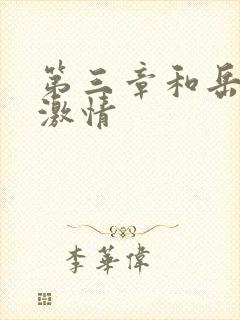 第三章和岳
激情
李華偉